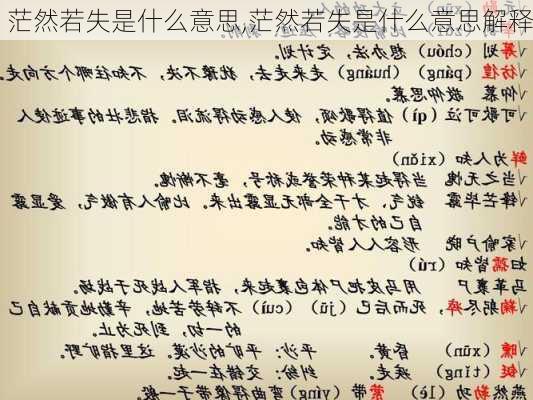 茫然若失是什么意思,茫然若失是什么意思解释
√筹划(chóu) 想办法,定计划。
√彷(páng)徨(huáng) 走来走去,犹豫不决,不知往哪个方向走。
√仰慕 敬仰思慕。
√可歌可泣(qì) 值得歌颂,使人感动得流泪。指悲壮的事迹使人
非常感动。
鲜为人知(xiǎn)
√当之无愧 当得起某种荣誉或称号,毫不惭愧。
√锋芒毕露 锐气、才干全部显露出来。比喻人有傲气,爱显露
自己的才能。
√家喻户晓 形容人人皆知。
妇孺皆知(rú)
马革裹尸 用马皮把尸体包裹起来,指军人战死于战场。
√鞠躬尽瘁,死而后已(jū)(cuì) 不辞劳苦地,辛勤地贡献自己
的一切,到死为止。
√曛(xūn) 昏黄。 平沙:平旷的沙漠。这里指旷野。
√铤(tǐng) 疾走。 纷:交错在一起。
燕然勒功(lè) 萦带(yíng)弯曲得像带子一般。